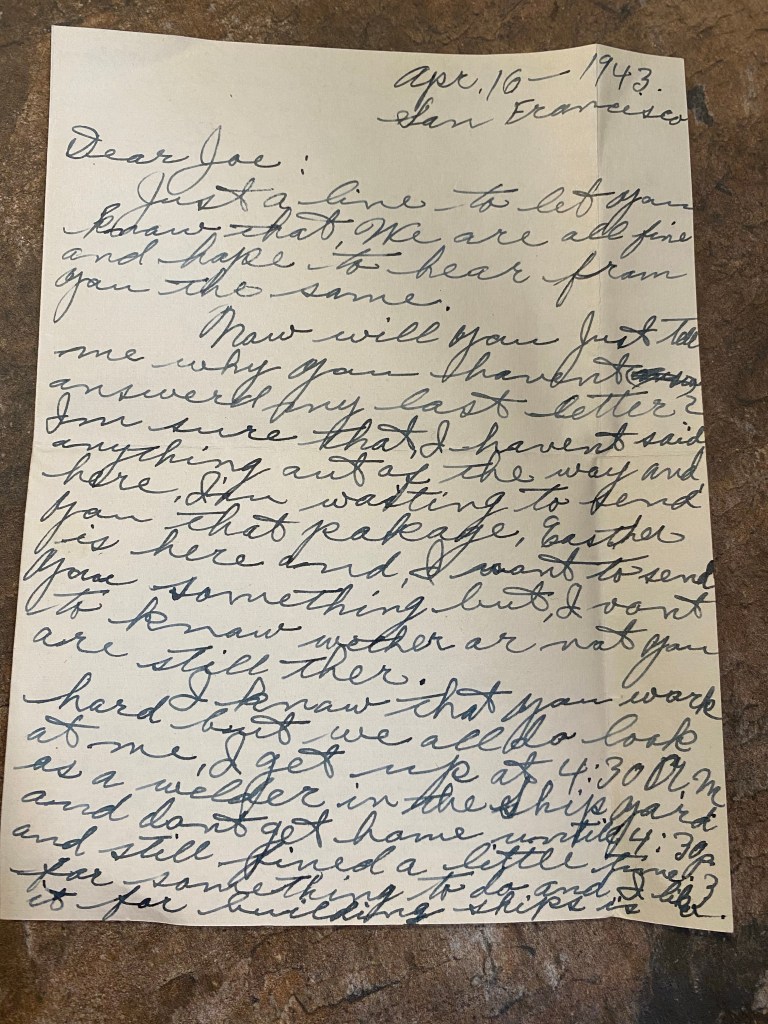 Apr. 16 — 1943.
San Francisco
Dear Joe :
Just a line to let you
know that, We are all fine
and hope to hear from
you the same.
Now will you Just tell
me why you havent
answerd my last letter?
Im sure that, I havent said
anything out of the way and
here, I'm waiting to send
you that pakage, Easther
is here and, I want to send
you something but, I vont
to know wether or not you
are still ther.
I know that you work
hard but we all do look
at me, I get up at 4:30 A.M
as a welder in the ship yard
and dont get home until 4:30 p.
and still fined a little time
for something to do and, I like
it for building ships is